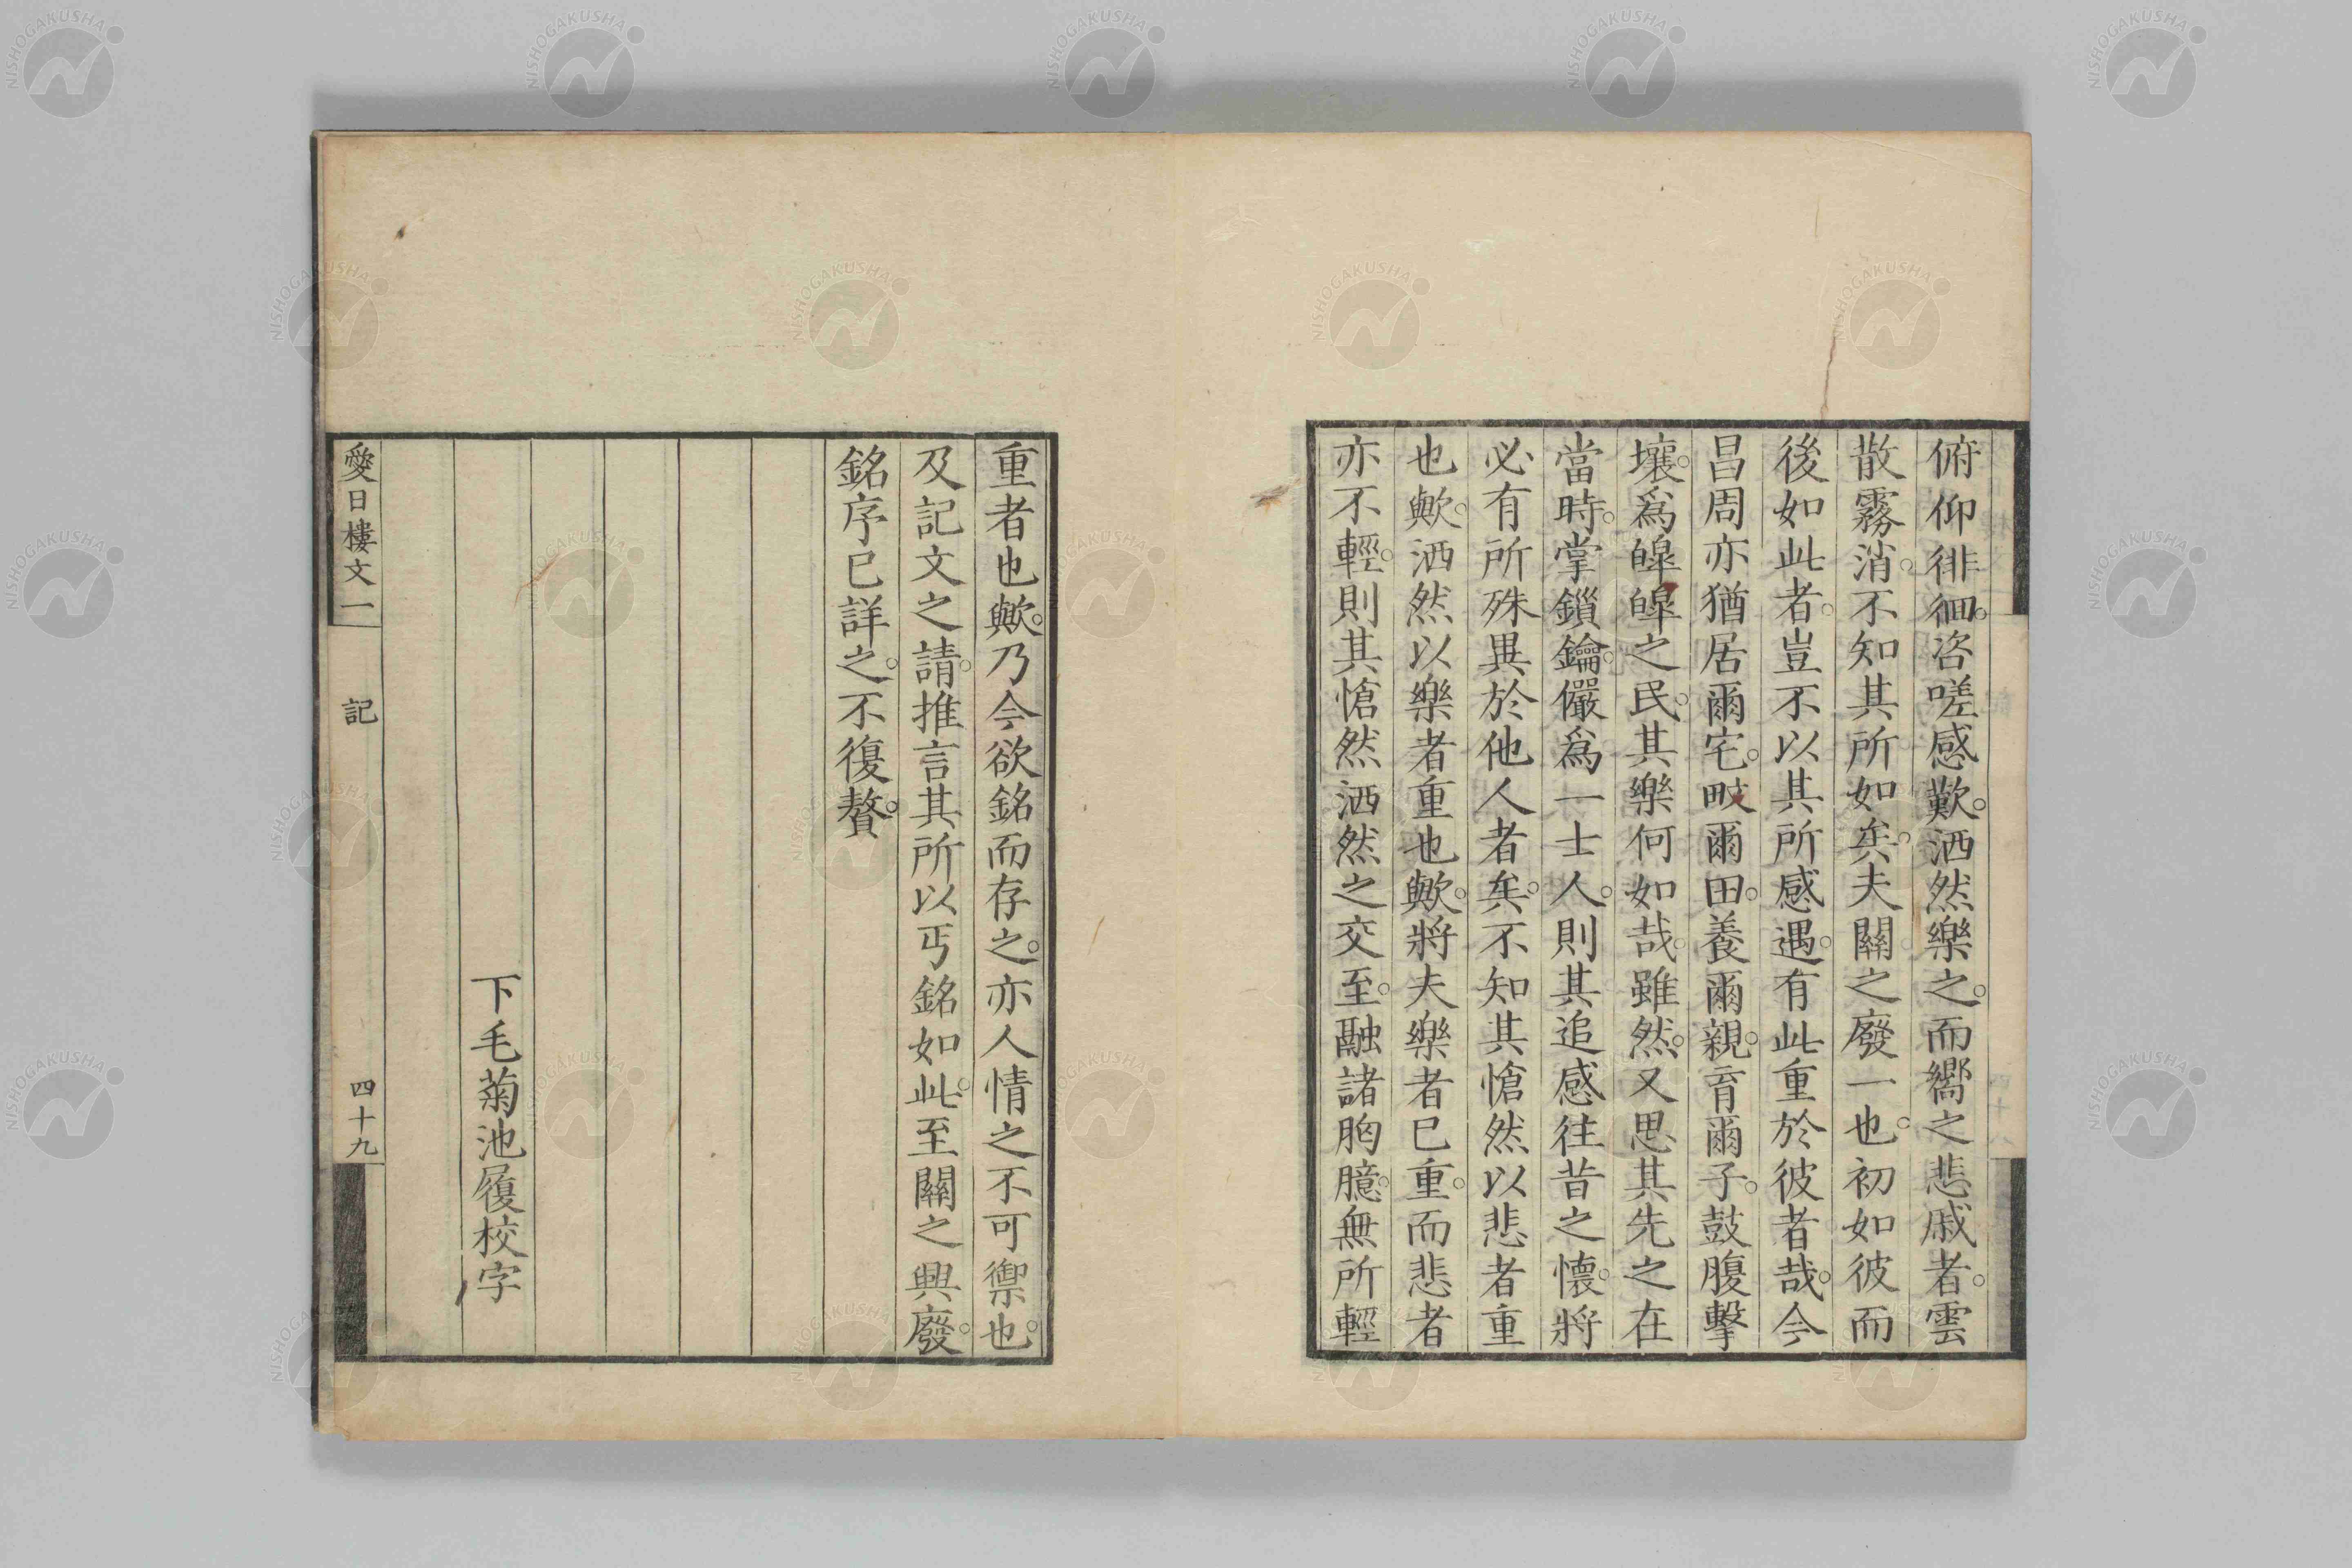 俯仰徘徊。咨嗟感歎。洒然樂之。而嚮之悲戚者。雲
散霧消。不知其所如矣。夫關之廢一也。初如彼而
後如此者。豈不以其所感遇。有此重於彼者哉。今
昌周亦猶居爾宅。畋爾田。養爾親。育爾子。鼓腹擊
壤。爲皥皥之民。其樂何如哉。雖然。又思其先之在
當時。掌鎖鑰。儼爲一士人。則其追感往昔之懷。將
必有所殊異於他人者矣。不知其愴然以悲者重
也歟。洒然以樂者重也歟。將夫樂者已重。而悲者
亦不輕。則其愴然洒然之交至。融諸胸臆。無所輕
重者也歟。乃今欲銘而存之。亦人情之不可禦也。
及記文之請。推言其所以丐銘如此。至關之興廢。
銘序已詳之。不復贅。
下毛菊池履校字
愛日樓文一 記 四十九
NISHOGAKUSHA
NISHOGAKUSHA
NISHOGAKUSHA
NISHOGAKUSHA
NISHOGAKUSHA
NISHOGAKUSHA
NISHOGAKUSHA
NISHOGAKUSHA
NISHOGAKUSHA
NISHOGAKUSHA
NISHOGAKUSHA
NISHOGAKUSHA
NISHOGAKUSHA